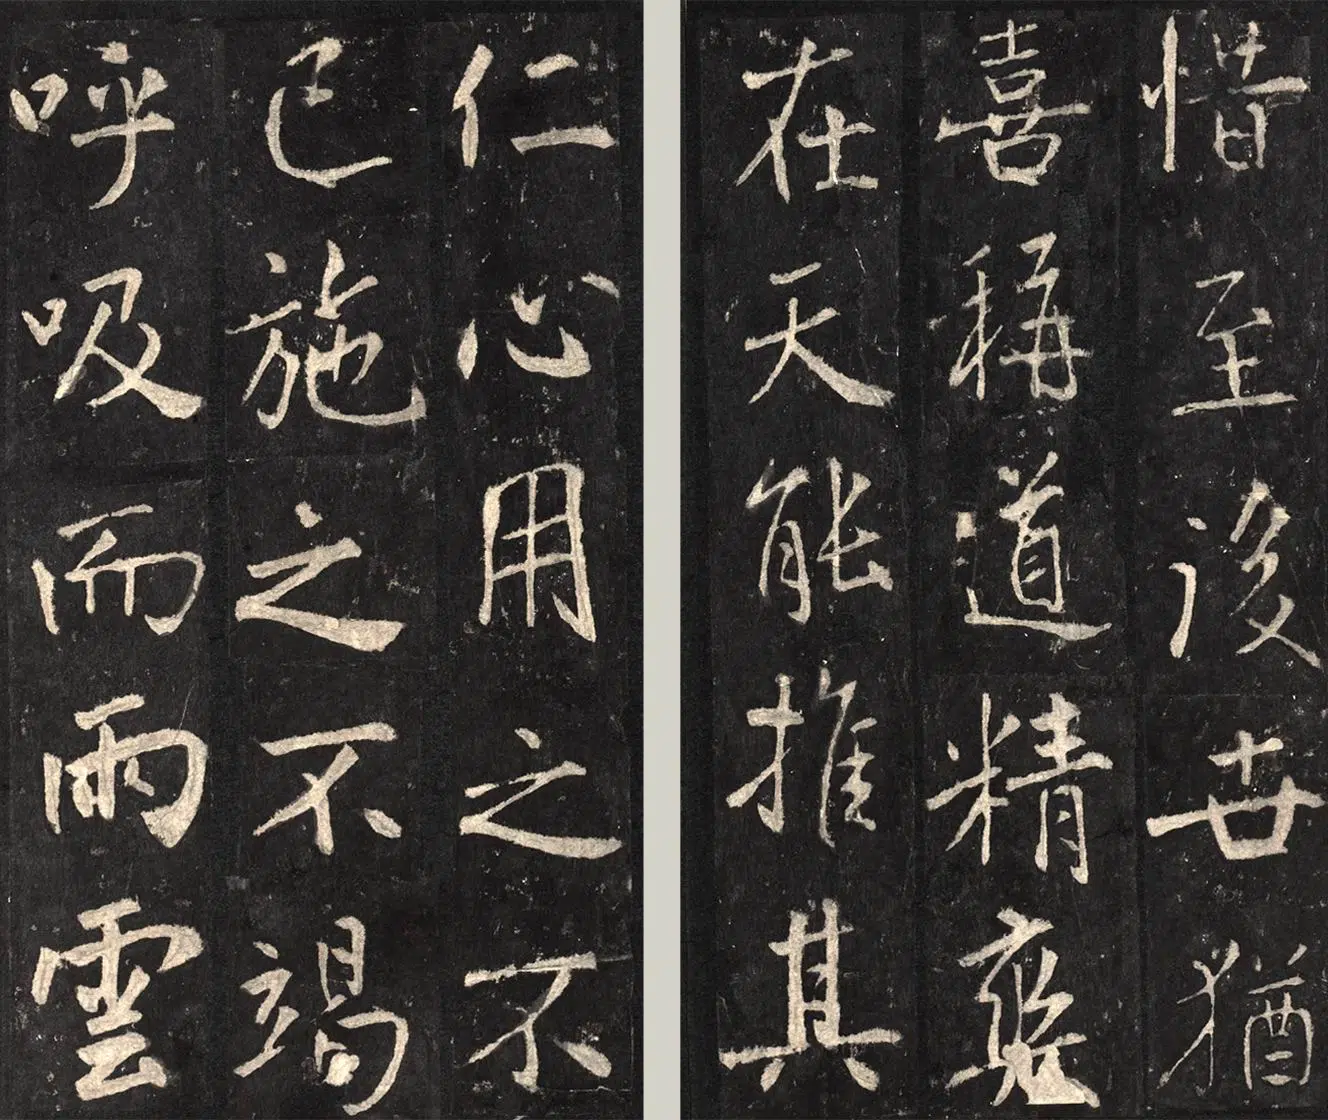 惜至後世猶
喜稱道精爽
在天能推其
仁心用之不
已施之不竭
呼吸而雨雲